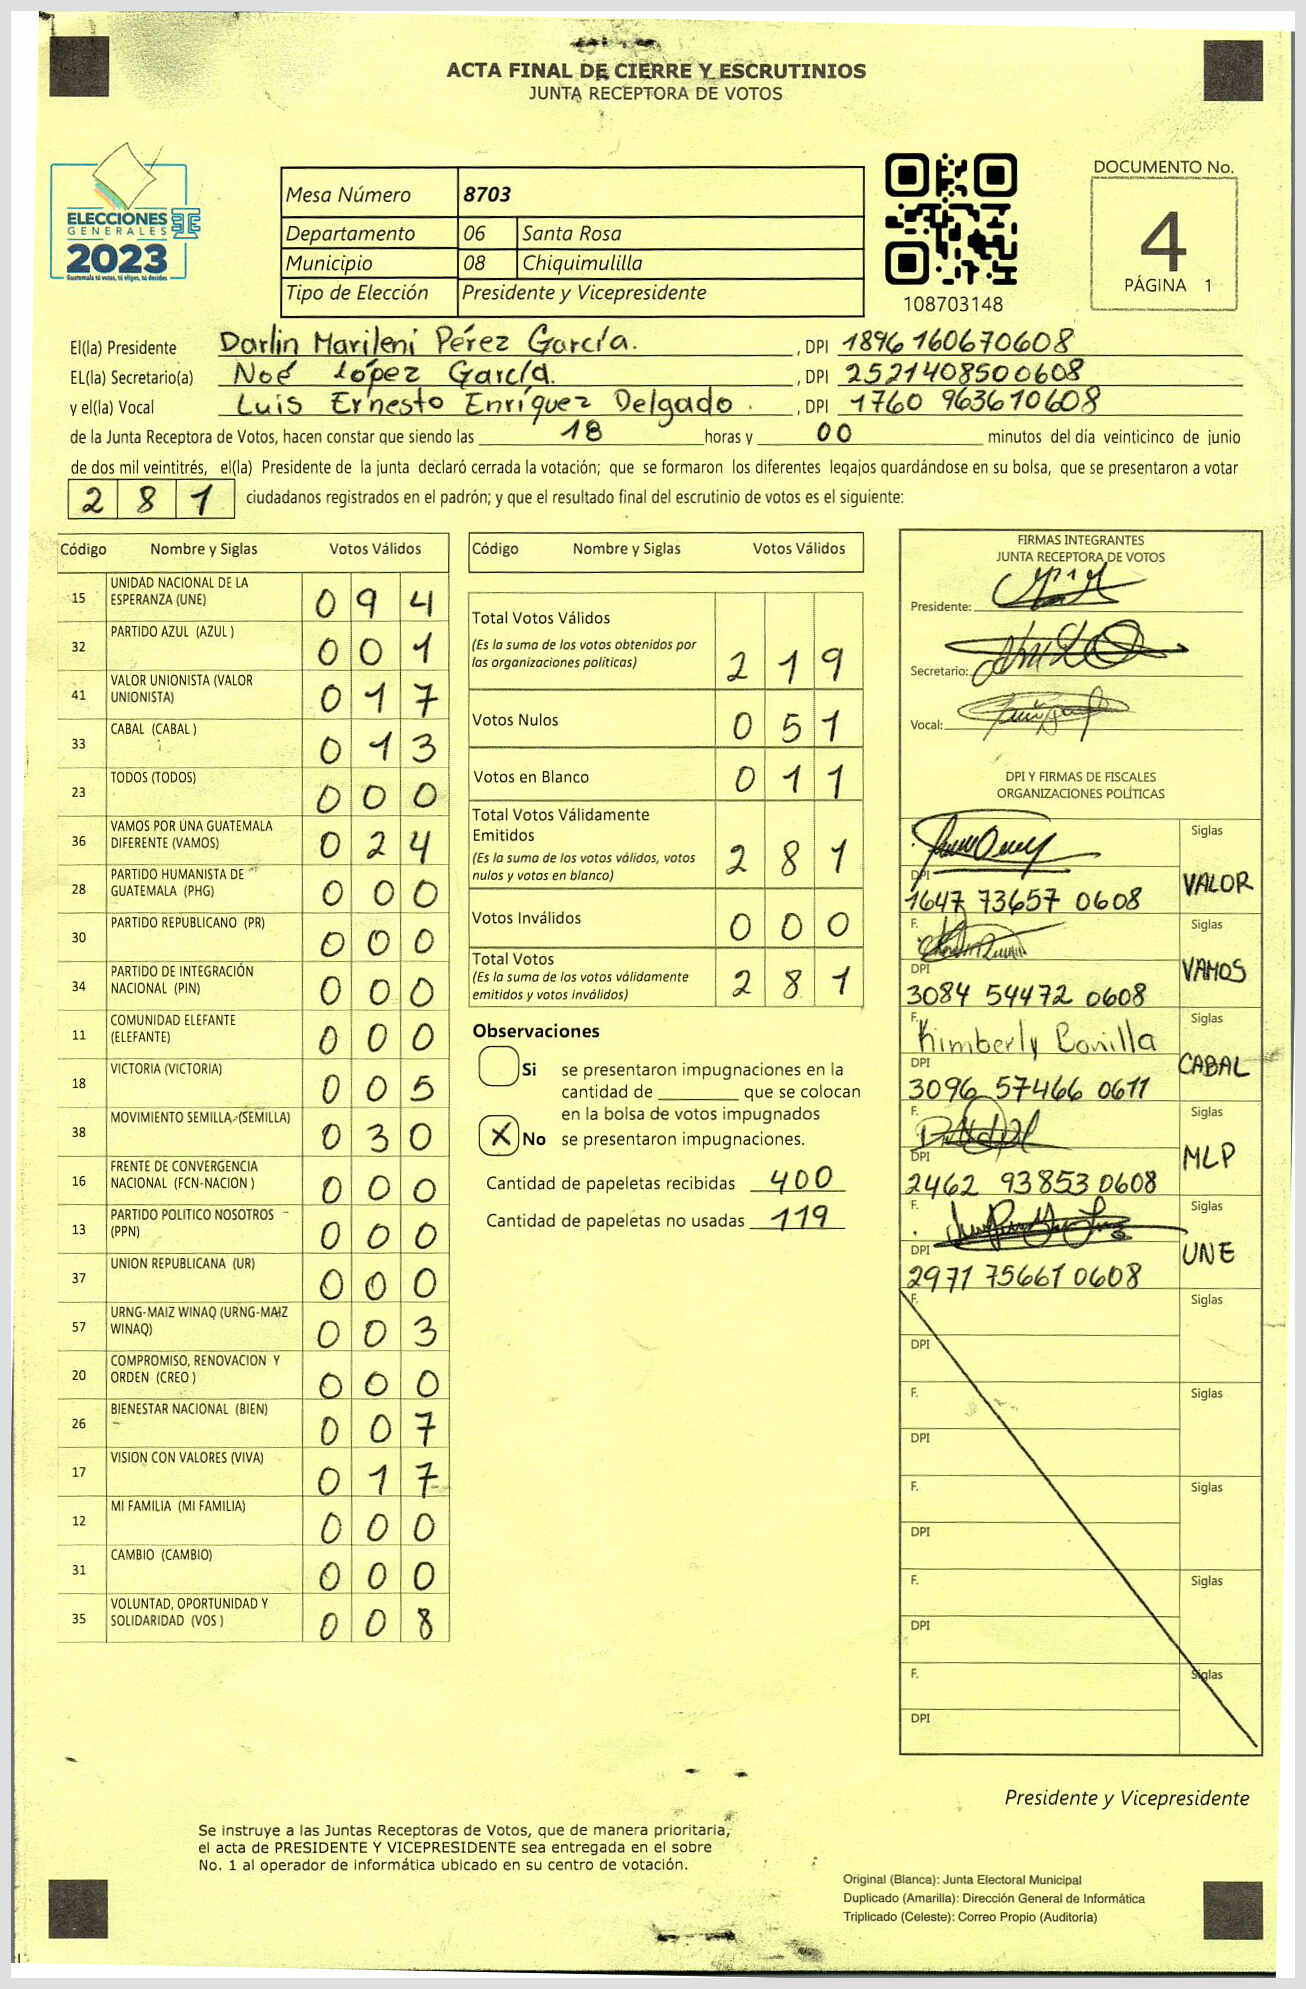 ACTA FINAL DE CIERRE Y ESCRUTINIOS
JUNTA RECEPTORA DE VOTOS
ELECCIONES
GENERALES
2023
Guatemala tú votas, tú eliges, tú decides
Mesa Número 8703
Departamento 06 Santa Rosa
Municipio 08 Chiquimulilla
Tipo de Elección Presidente y Vicepresidente
108703148
DOCUMENTO No.
4
PÁGINA 1
El(la) Presidente Darlin Marileni Pérez García. , DPI 1896 160670608
EL(la) Secretario(a) Noé López García. , DPI 2521408500608
y el(la) Vocal Luis Ernesto Enríquez Delgado . , DPI 1760 963610608
de la Junta Receptora de Votos, hacen constar que siendo las 18 horas y 00 minutos del día veinticinco de junio
de dos mil veintitrés, el(la) Presidente de la junta declaró cerrada la votación; que se formaron los diferentes legajos guardándose en su bolsa, que se presentaron a votar
281 ciudadanos registrados en el padrón; y que el resultado final del escrutinio de votos es el siguiente:
Código Nombre y Siglas Votos Válidos
15 UNIDAD NACIONAL DE LA ESPERANZA (UNE) 094
32 PARTIDO AZUL (AZUL ) 001
41 VALOR UNIONISTA (VALOR UNIONISTA) 017
33 CABAL (CABAL ) 013
23 TODOS (TODOS) 000
36 VAMOS POR UNA GUATEMALA DIFERENTE (VAMOS) 024
28 PARTIDO HUMANISTA DE GUATEMALA (PHG) 000
30 PARTIDO REPUBLICANO (PR) 000
34 PARTIDO DE INTEGRACIÓN NACIONAL (PIN) 000
11 COMUNIDAD ELEFANTE (ELEFANTE) 000
18 VICTORIA (VICTORIA) 005
38 MOVIMIENTO SEMILLA (SEMILLA) 030
16 FRENTE DE CONVERGENCIA NACIONAL (FCN-NACION ) 000
13 PARTIDO POLITICO NOSOTROS (PPN) 000
37 UNION REPUBLICANA (UR) 000
57 URNG-MAIZ WINAQ (URNG-MAIZ WINAQ) 003
20 COMPROMISO, RENOVACION Y ORDEN (CREO ) 000
26 BIENESTAR NACIONAL (BIEN) 007
17 VISION CON VALORES (VIVA) 017
12 MI FAMILIA (MI FAMILIA) 000
31 CAMBIO (CAMBIO) 000
35 VOLUNTAD, OPORTUNIDAD Y SOLIDARIDAD (VOS ) 008
Código Nombre y Siglas Votos Válidos
Total Votos Válidos
(Es la suma de los votos obtenidos por
las organizaciones políticas) 219
Votos Nulos 051
Votos en Blanco 011
Total Votos Válidamente
Emitidos
(Es la suma de los votos válidos, votos
nulos y votos en blanco) 281
Votos Inválidos 000
Total Votos
(Es la suma de los votos válidamente
emitidos y votos inválidos) 281
Observaciones
Si se presentaron impugnaciones en la
cantidad de ________ que se colocan
en la bolsa de votos impugnados
X No se presentaron impugnaciones.
Cantidad de papeletas recibidas 400
Cantidad de papeletas no usadas 119
FIRMAS INTEGRANTES
JUNTA RECEPTORA DE VOTOS
Presidente:
Secretario:
Vocal:
DPI Y FIRMAS DE FISCALES
ORGANIZACIONES POLÍTICAS
Siglas
DPI
1647 73657 0608 VALOR
F. Siglas
DPI
3084 54472 0608 VAMOS
F. Kimberly Bonilla Siglas
DPI
3096 57466 0611 CABAL
F. Siglas
DPI
2462 93853 0608 MLP
F. Siglas
DPI
2971 75661 0608 UNE
F. Siglas
DPI
F. Siglas
DPI
F. Siglas
DPI
F. Siglas
DPI
F. Siglas
DPI
Presidente y Vicepresidente
Se instruye a las Juntas Receptoras de Votos, que de manera prioritaria,
el acta de PRESIDENTE Y VICEPRESIDENTE sea entregada en el sobre
No. 1 al operador de informática ubicado en su centro de votación.
Original (Blanca): Junta Electoral Municipal
Duplicado (Amarilla): Dirección General de Informática
Triplicado (Celeste): Correo Propio (Auditoría)